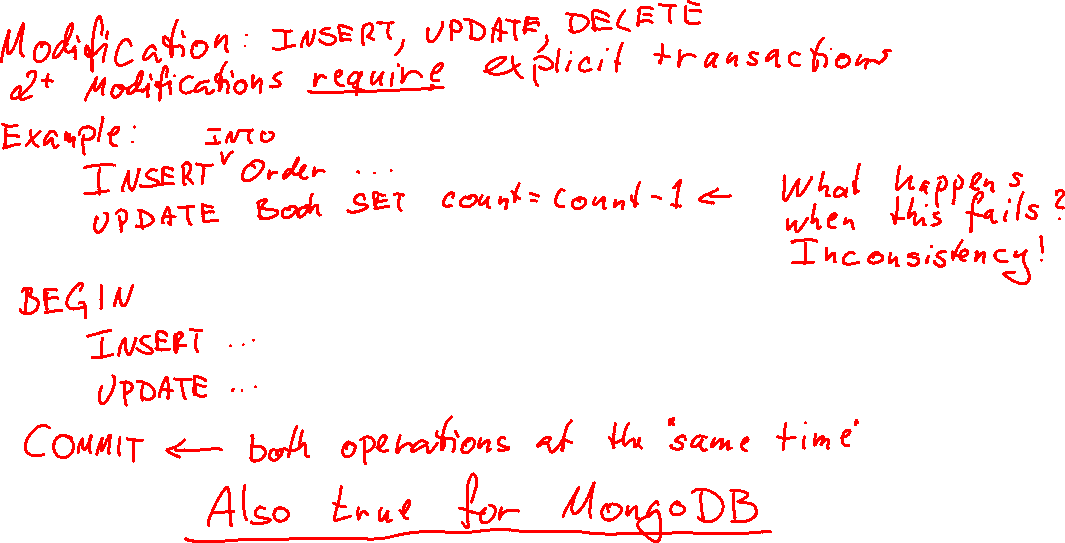 Modification: INSERT, UPDATE, DELETE
2+ Modifications require explicit transactions
Example: INTO
INSERT ˅ Order ...
UPDATE Book SET count = count - 1 ← What happens
when this fails?
Inconsistency!
BEGIN
INSERT ...
UPDATE ...
COMMIT ← both operations at the "same time"
Also true for MongoDB